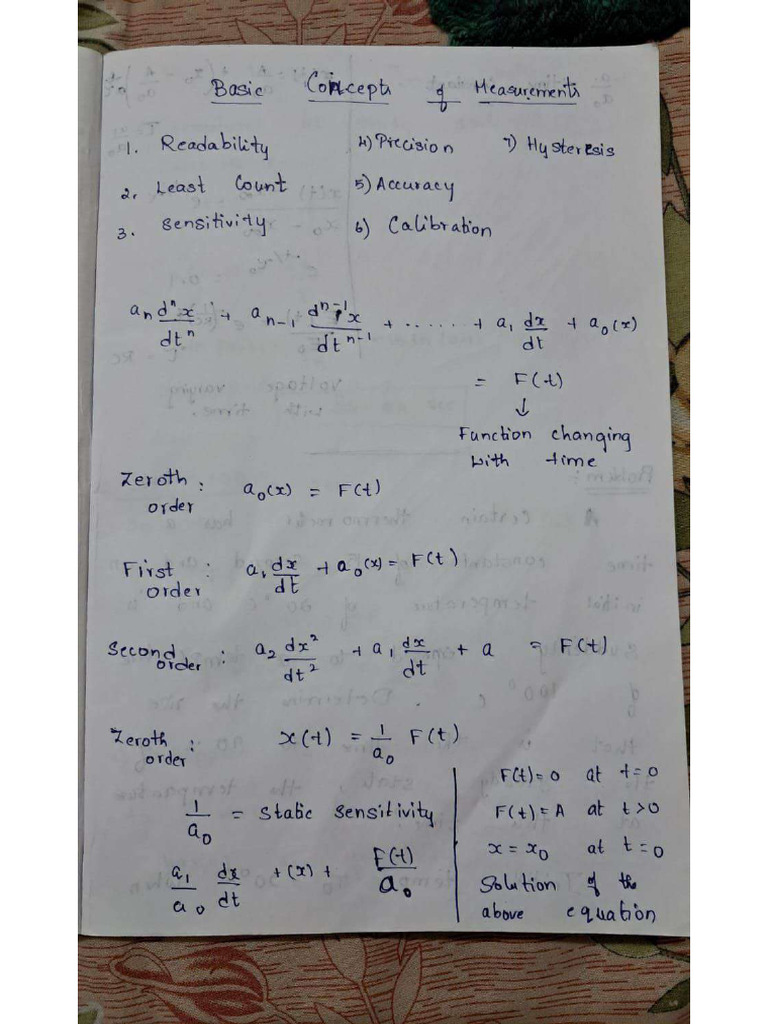 Basic Concepts of Measurements
1. Readability 4) Precision 7) Hysteresis
2. Least Count 5) Accuracy
3. Sensitivity 6) Calibration
aₙ dⁿx/dtⁿ + aₙ₋₁ dⁿ⁻¹x/dtⁿ⁻¹ + ...... + a₁ dx/dt + a₀(x)
= F(t)
↓
Function changing
with time
Zeroth order : a₀(x) = F(t)
First order : a₁ dx/dt + a₀(x) = F(t)
Second order : a₂ dx²/dt² + a₁ dx/dt + a = F(t)
Zeroth order : x(t) = 1/a₀ F(t)
1/a₀ = Static Sensitivity
a₁/a₀ dx/dt + (x) + F(t)/a₀
F(t) = 0 at t = 0
F(t) = A at t > 0
x = x₀ at t = 0
Solution of the
above equation